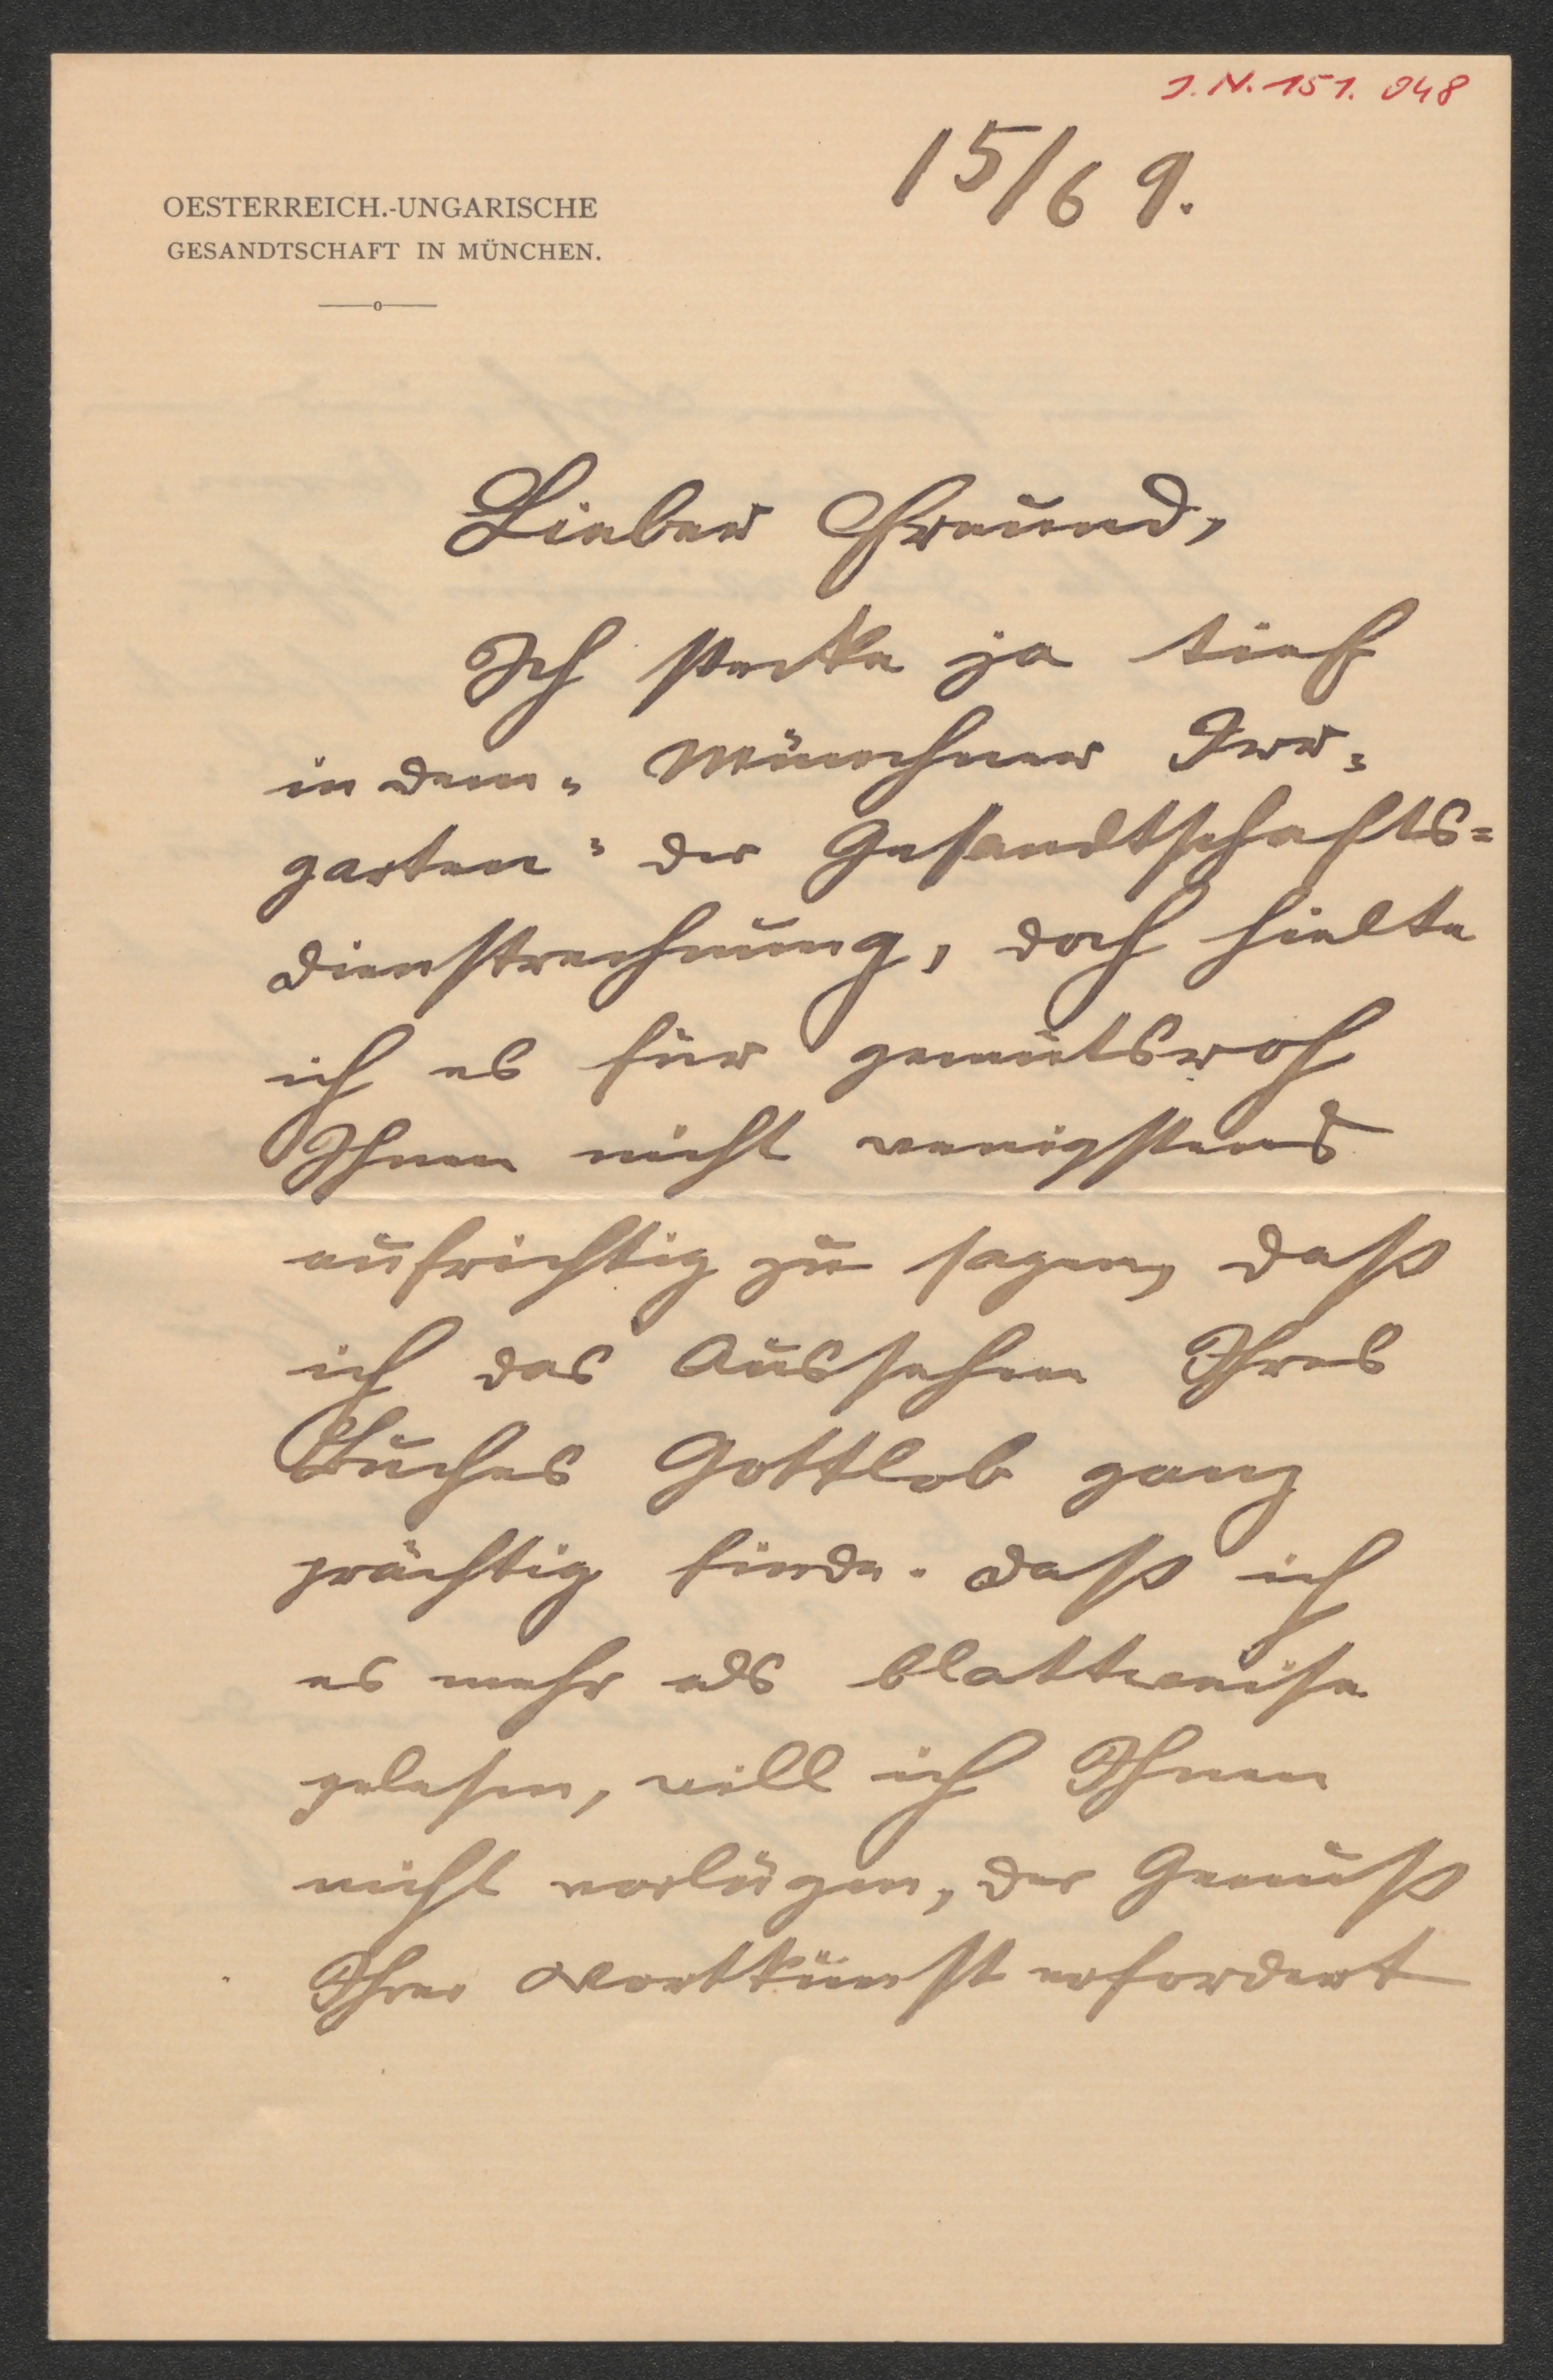 J.N. 151.048
15/6 9.
OESTERREICH.-UNGARISCHE
GESANDTSCHAFT IN MÜNCHEN.
Lieber Freund,
Ich stecke ja tief
in dem „Münchner Irr=
garten" der Gesandtschafts=
dienstrechnung, doch hielte
ich es für gemütsroh
Ihnen nicht wenigstens
aufrichtig zu sagen, daß
ich das Aussehen Ihres
Buches Gottlob ganz
prächtig finde. Daß ich
es mehr als blattweise
gelesen, will ich Ihnen
nicht vorlügen, der Genuß
Ihrer Wortkunst erfordert